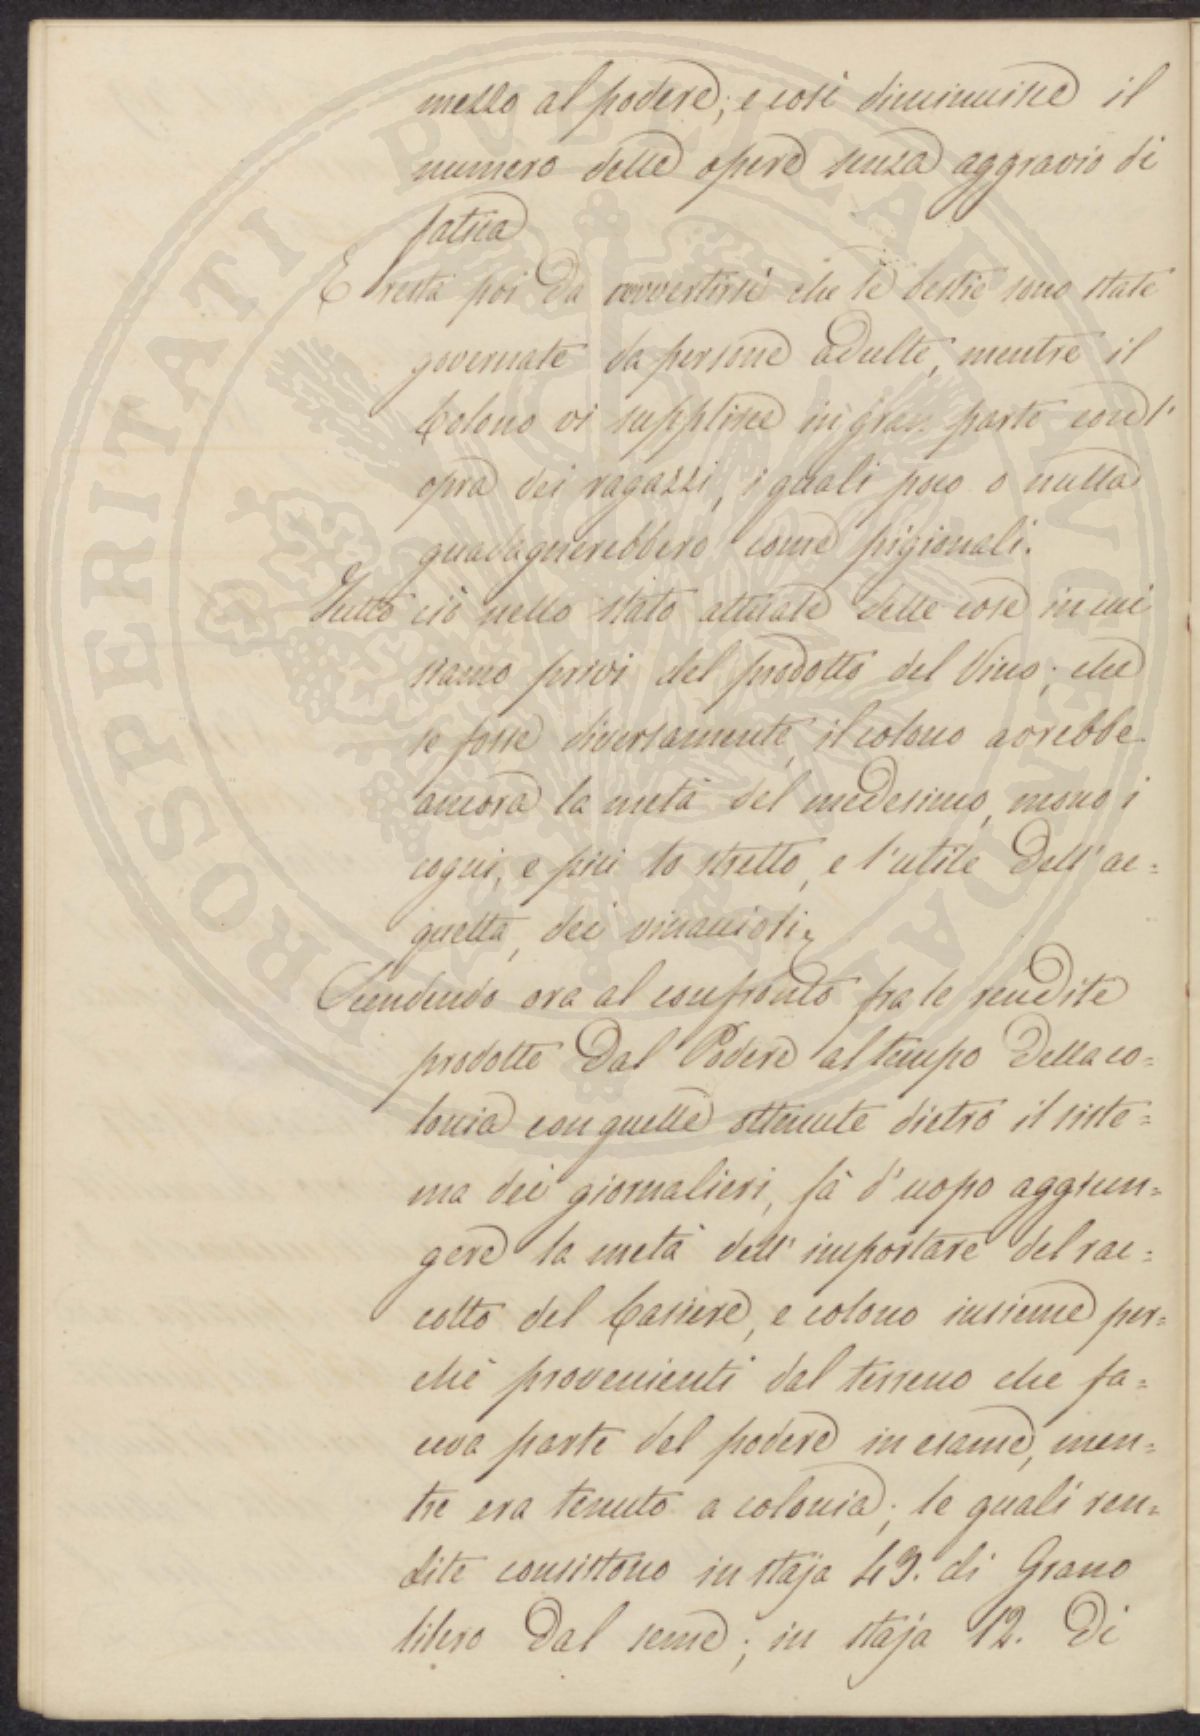 mezzo al podere; e così diminuisce il
numero delle opere senza aggravio di
fatica
E resta poi da avvertirsi che le bestie sono state
governate da persone adulte, mentre il
Colono vi supplisce in gran parte con l'
opra dei ragazzi, i quali poco o nulla
guadagnerebbero come pigionali.
Tutto ciò nello stato attuale delle cose in cui
siamo privi del prodotto del Vino; che
se fosse diversamente, il colono avrebbe
ancora la metà del medesimo, meno i
cogni, e più lo stretto, e l'utile dell'ac=
quetta, dei vinaccioli.
Scendendo ora al confronto fra le rendite
prodotte dal Podere al tempo della co=
lonia con quelle ottenute dietro il siste=
ma dei giornalieri, fà d'uopo aggiun=
gere la metà dell'importare del rac=
colto del Casiere, e colono insieme per=
chè provenienti dal terreno che fa=
ceva parte del podere in esame, men=
tre era tenuto a colonia; le quali ren=
dite consistono in staja 43. di Grano
libero dal seme; in staja 12. di
PROSPERITATI PUBLICAE AUGENDAE